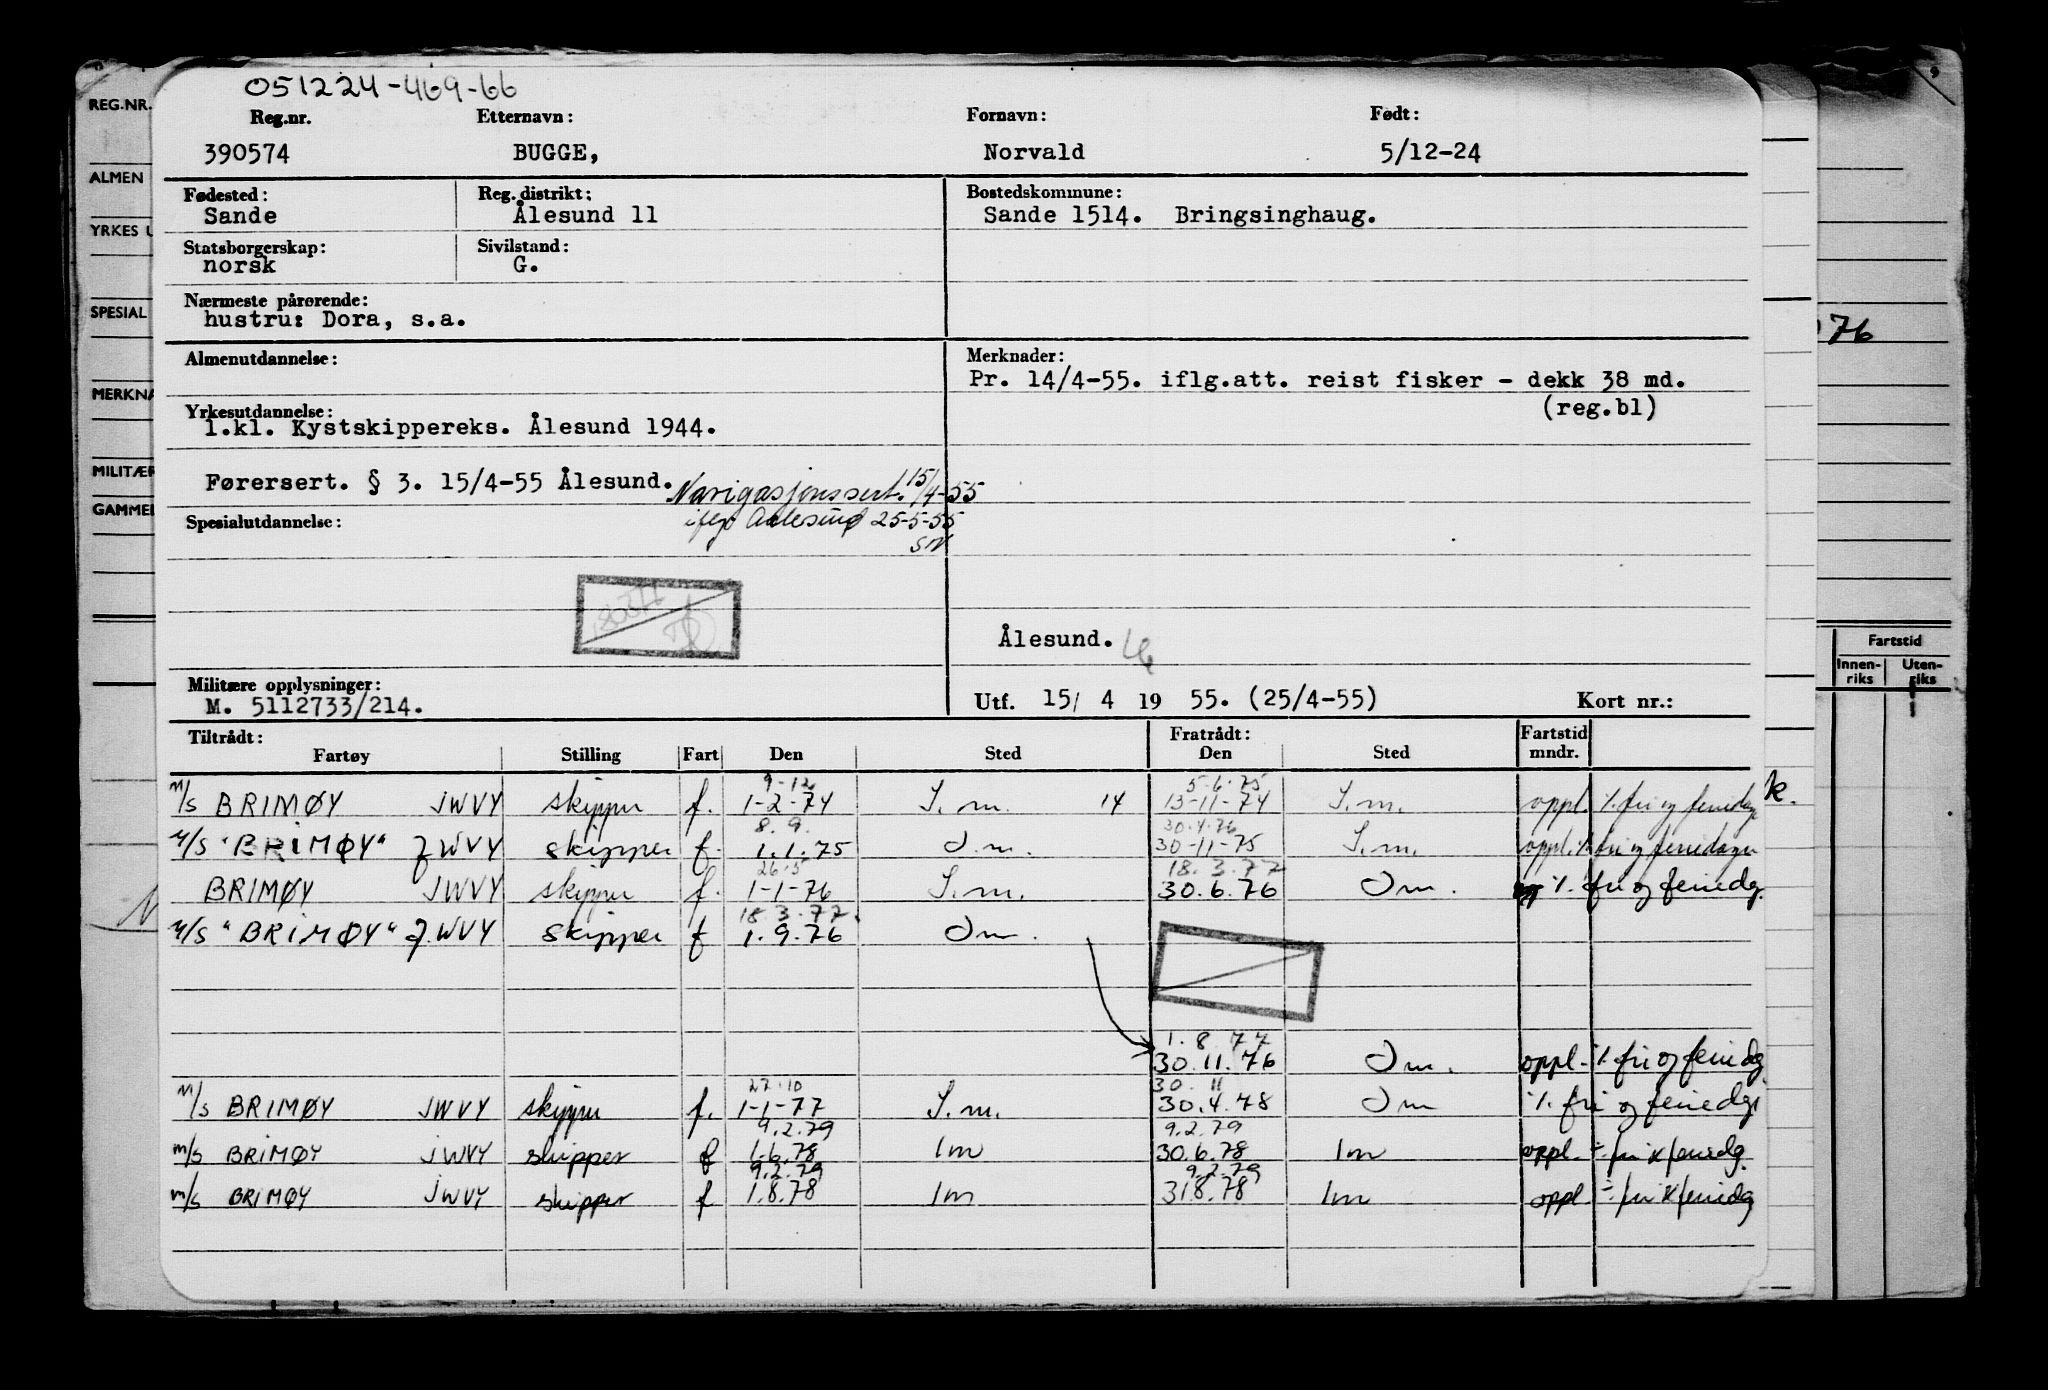 051224-469-66
Reg.nr. Etternavn: Fornavn: Født:
390574 BUGGE, Norvald 5/12-24
Fødested: Reg. distrikt: Bostedskommune:
Sande Ålesund 11 Sande 1514. Bringsinghaug.
Statsborgerskap: Sivilstand:
norsk G.
Nærmeste pårørende:
hustru: Dora, s.a.
Almenutdannelse: Merknader:
Pr. 14/4-55. iflg.att. reist fisker - dekk 38 md.
(reg.bl)
Yrkesutdannelse:
1.kl. Kystskippereks. Ålesund 1944.
Førersert. § 3. 15/4-55 Ålesund. Navigasjonssert. 15/4-55
Spesialutdannelse: iflg Aalesund 25-5-55
SN
Ålesund.
Militære opplysninger:
M. 5112733/214. Utf. 15/ 4 19 55. (25/4-55) Kort nr.:
Tiltrådt: Fratrådt: Fartstid
Fartøy Stilling Fart Den Sted Den Sted mndr.
9-12 5-6-75
M/S BRIMØY JWVY skipper f. 1-2-74 I.m. 14 13-11-74 I.m. oppl. ./. fri og feriedage k.
8.9. 30.4.76
M/S "BRIMØY" JWVY skipper f. 1.1.75 Im. 30-11-75 I.m. oppl. ./. fri og feriedager
26.5 18.3.77
BRIMØY JWVY skipper f. 1-1-76 I.m. 30.6.76 Im. ./. fri og feriedg.
18.3.77.
M/S "BRIMØY" JWVY skipper f 1.9.76 Im.
1.8.77
30.11.76 Im. oppl. ./. fri og feriedg
27.10 30.11
M/S BRIMØY JWVY skipper f. 1-1-77 I.m. 30.4.78 Im ./. fri og feriedg
9.2.79 9.2.79
M/S BRIMØY JWVY skipper f 1.6.78 Im 30.6.78 Im oppl. ÷ fri & feriedg.
9.2.79 9.2.79
M/S BRIMØY JWVY skipper f 1.8.78 Im 31.8.78 Im oppl ÷ fri & feriedg
REG.NR.
ALMEN
YRKES U
SPESIAL
MERKNA
MILITÆR
GAMMEL
76
Fartstid
Innen-riks Uten-riks